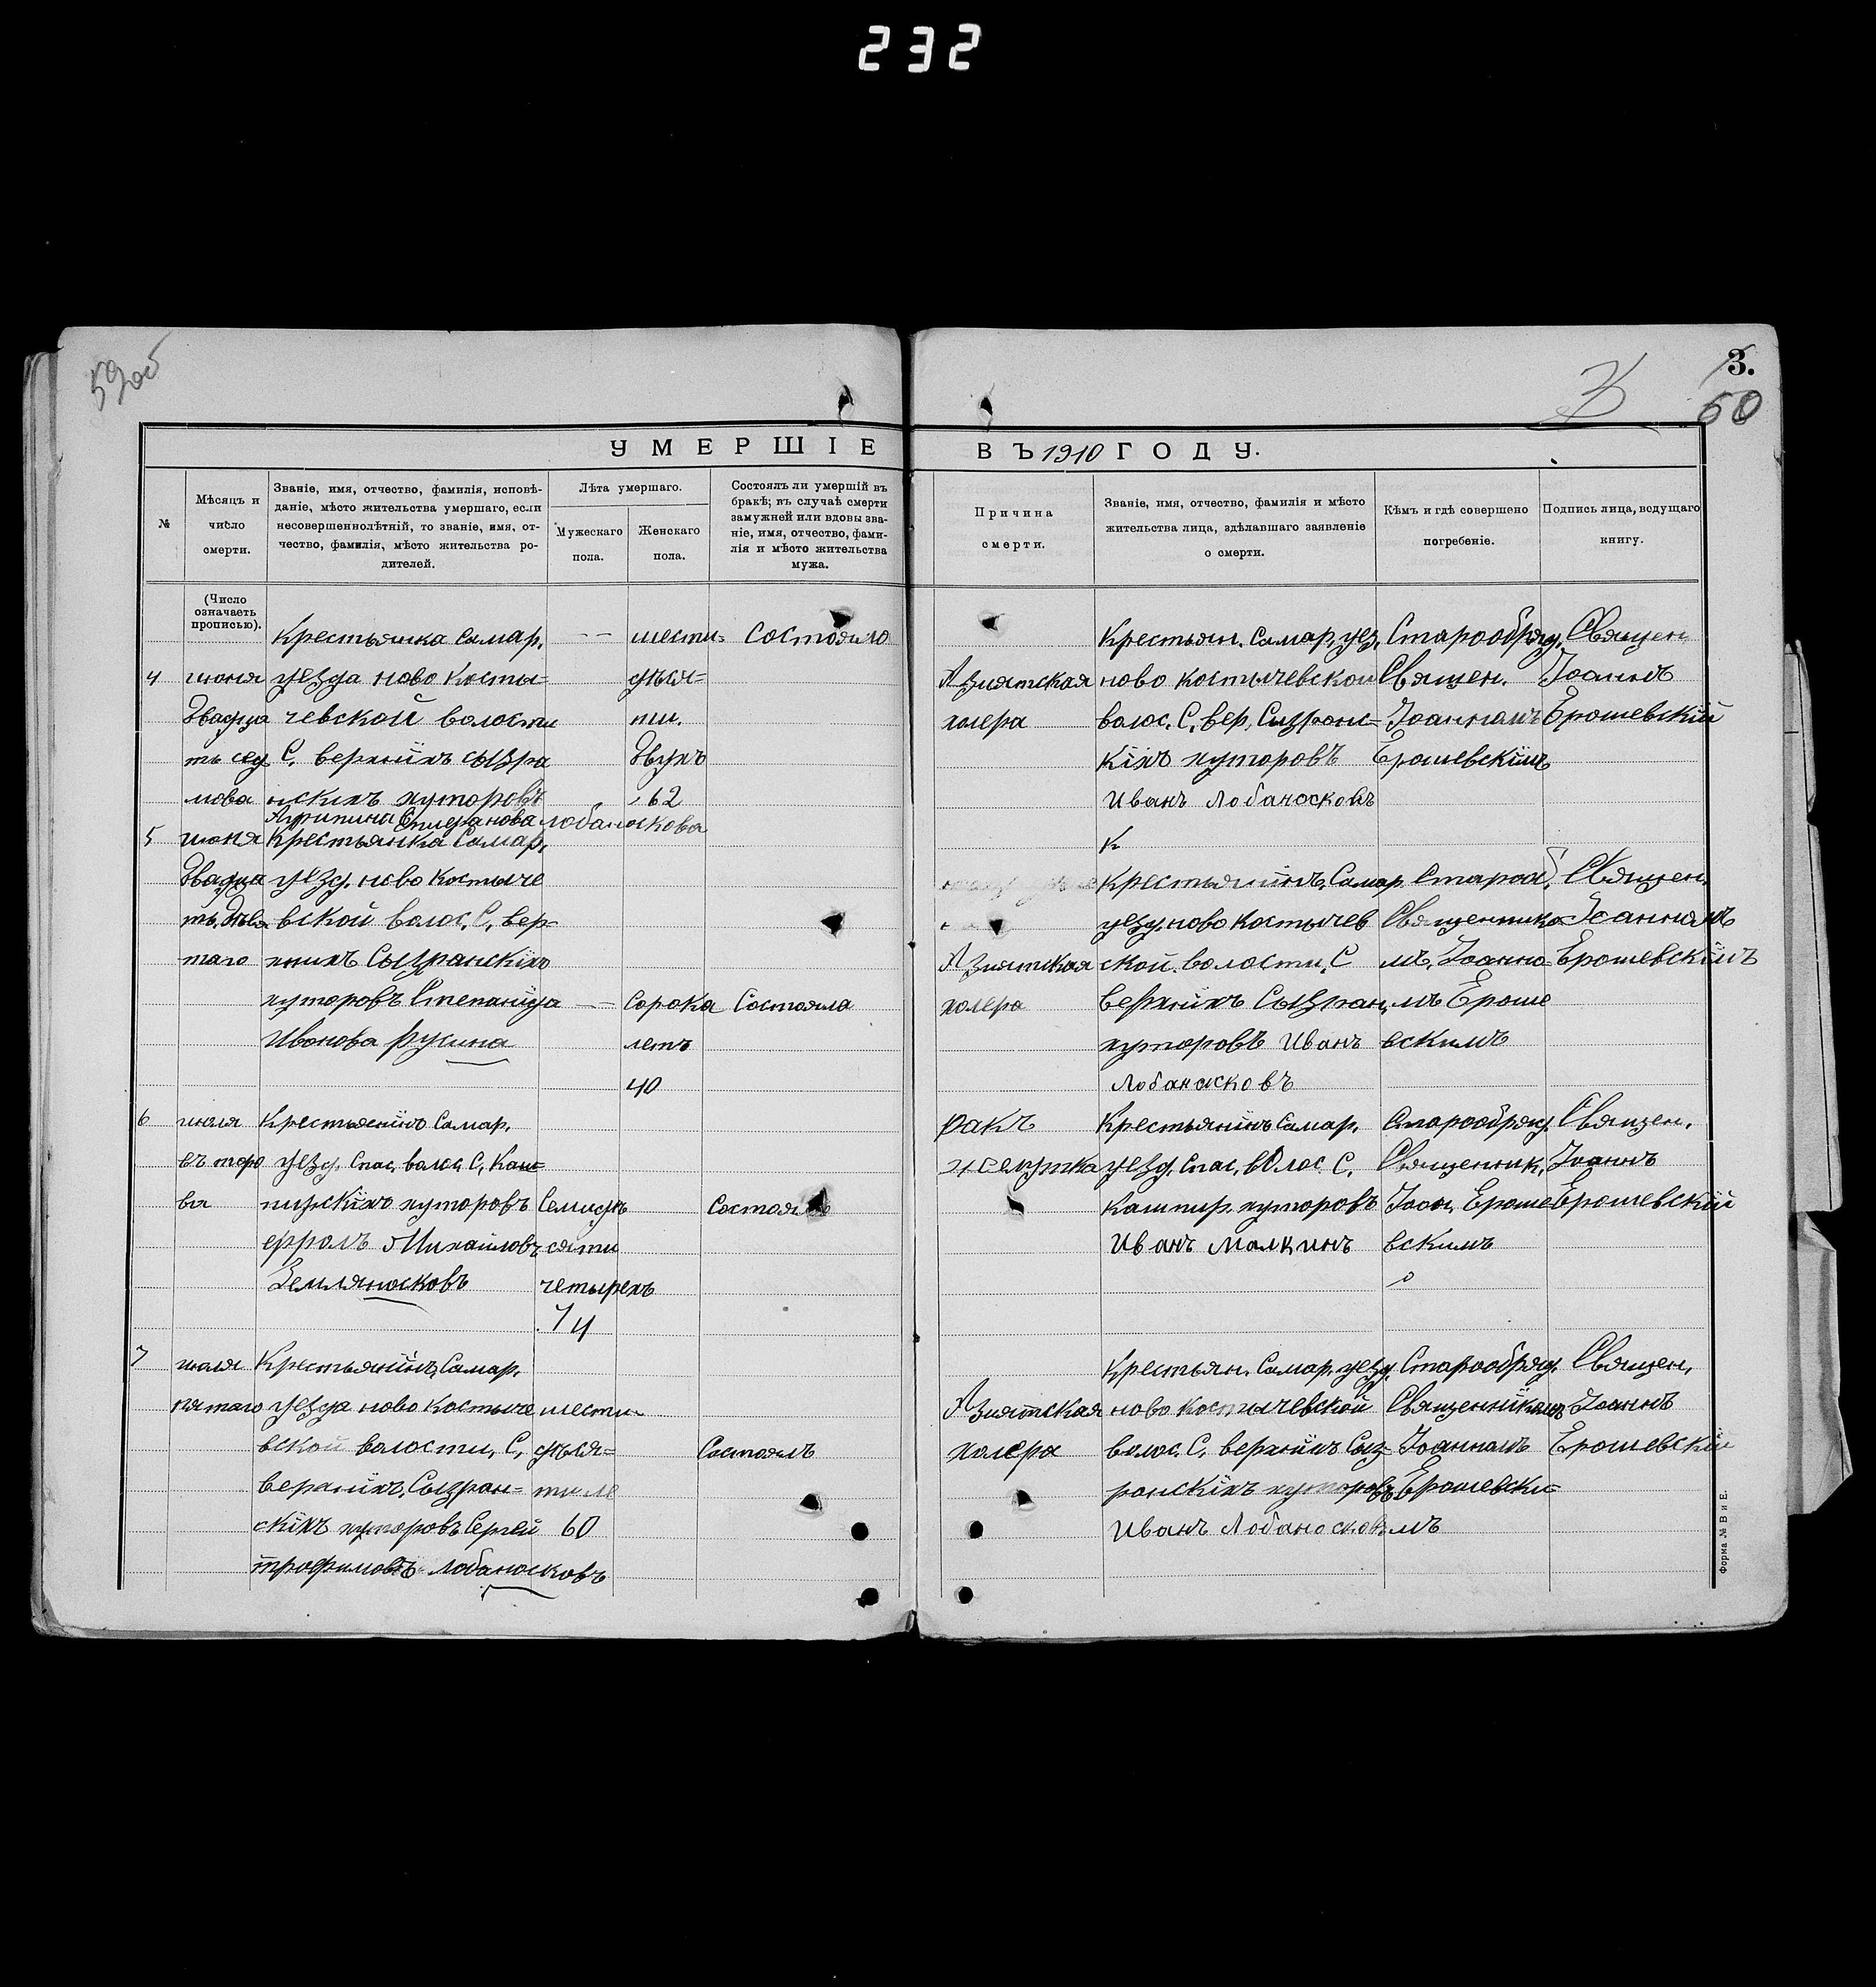 232
59об
3.
60
УМЕРШІЕ ВЪ 1910 ГОДУ.
№
Мѣсяцъ и
число
смерти.
Званіе, имя, отчество, фамилія, исповѣ-
даніе, мѣсто жительства умершаго, если
несовершеннолѣтній, то званіе, имя, от-
чество, фамилія, мѣсто жительства ро-
дителей.
Лѣта умершаго.
Мужескаго
пола.
Женскаго
пола.
Состоялъ ли умершій въ
бракѣ; въ случаѣ смерти
замужней или вдовы зва-
ніе, имя, отчество, фами-
лія и мѣсто жительства
мужа.
Причина
смерти.
Званіе, имя, отчество, фамилія и мѣсто
жительства лица, здѣлавшаго заявленіе
о смерти.
Кѣмъ и гдѣ совершено
погребеніе.
Подпись лица, ведущаго
книгу.
(Число
означаетъ
прописью).
4
июня
двадца
ть сед
мова
Крестьянка Самар.
уезда ново Косты=
чевской волости
С. верхнихъ сызра
нскихъ хуторовъ
Агрипина Степанова Лобаноскова
шести=
десѣ=
ти.
двухъ
62
состояла
Азиятская
холера
Крестьян. Самар. уез.
ново костычевской
волос. С. вер. Сызранс=
кіхъ хуторовъ
Иванъ Лобаносковъ
Старообряд.
Священ.
Іоанномъ
Ерошевскімъ
Священ
Іоаннъ
Ерошевскій
5
июня
двадца
ть девя
таго
Крестьянка Самар.
уезд. ново Костыче
вской волос. С. вер=
хнихъ Сызранскіхъ
хуторовъ Степанида
Иванова Русина
Сорока
летъ
40
Состояла
Азиятская
холера
к
Крестьянинъ Самар.
уезд. ново Костычев
ской волости. С
верхнихъ Сызран.
хуторовъ Иванъ
Лобаносковъ
Староо б.
Священнико
мъ. Іоанно
мъ Ероше
вскимъ
Священ.
Іоанномъ
Ерошевскімъ
6
июля
въ торо
ва
Крестьянинъ Самар.
уезд. Спас. волос. С. Каш=
пирскіхъ хуторовъ
Земляносковъ
Михайловъ
Семидѣ
сяти
четырехъ
74
Состоялъ
ракъ
желутка
Крестьянинъ Самар.
уезд. Спас. волос. С.
Кашпир. хуторовъ
Иванъ Малкинъ
Старообряд.
Священник.
Іоан. Ероше
вскимъ
Священ.
Іоаннъ
Ерошевскій
7
июля
пятаго
Крестьянинъ Самар.
уезда ново Костыче
вской волости, С.
верхнихъ Сызран=
скіхъ хуторовъ Сергей
трофимовъ Лобаносковъ
шести=
десѣ=
ти ле
60
Состоялъ
Азиятская
холера
Крестьян. Самар. уезд.
ново костычевской
волос. С. верхнихъ Сыз
ранскіхъ хуторовъ
Иванъ Лобаносковъ
Старообряд.
Священникомъ
Іоанномъ
Ерошевски=
мъ
Священ.
Іоаннъ
Ерошевскій
Форма № В и Е.